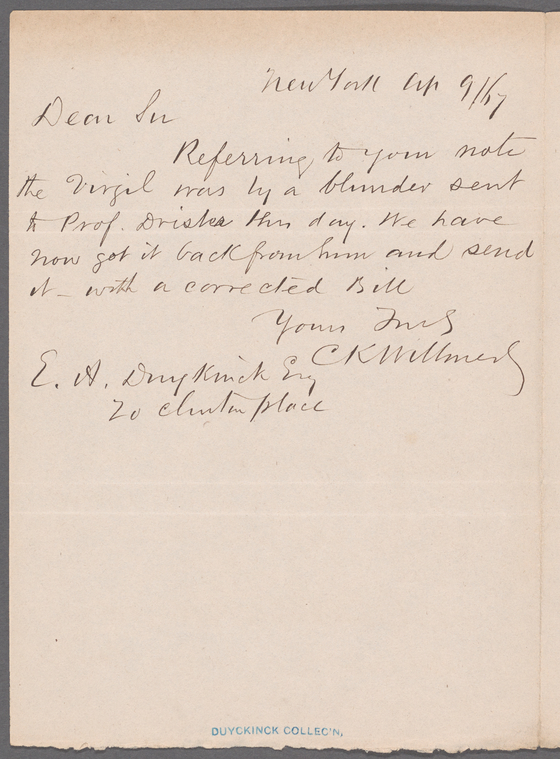 New York Ap 9/67
Dear Sir
Referring to your note
the Virgil was by a blunder sent
to Prof. Drisler this day. We have
now got it back from him and send
it - with a corrected Bill
Yours Truly
C K Willmer
E. A. Duyckinck Esq
20 Clinton place
DUYCKINCK COLLEC'N,